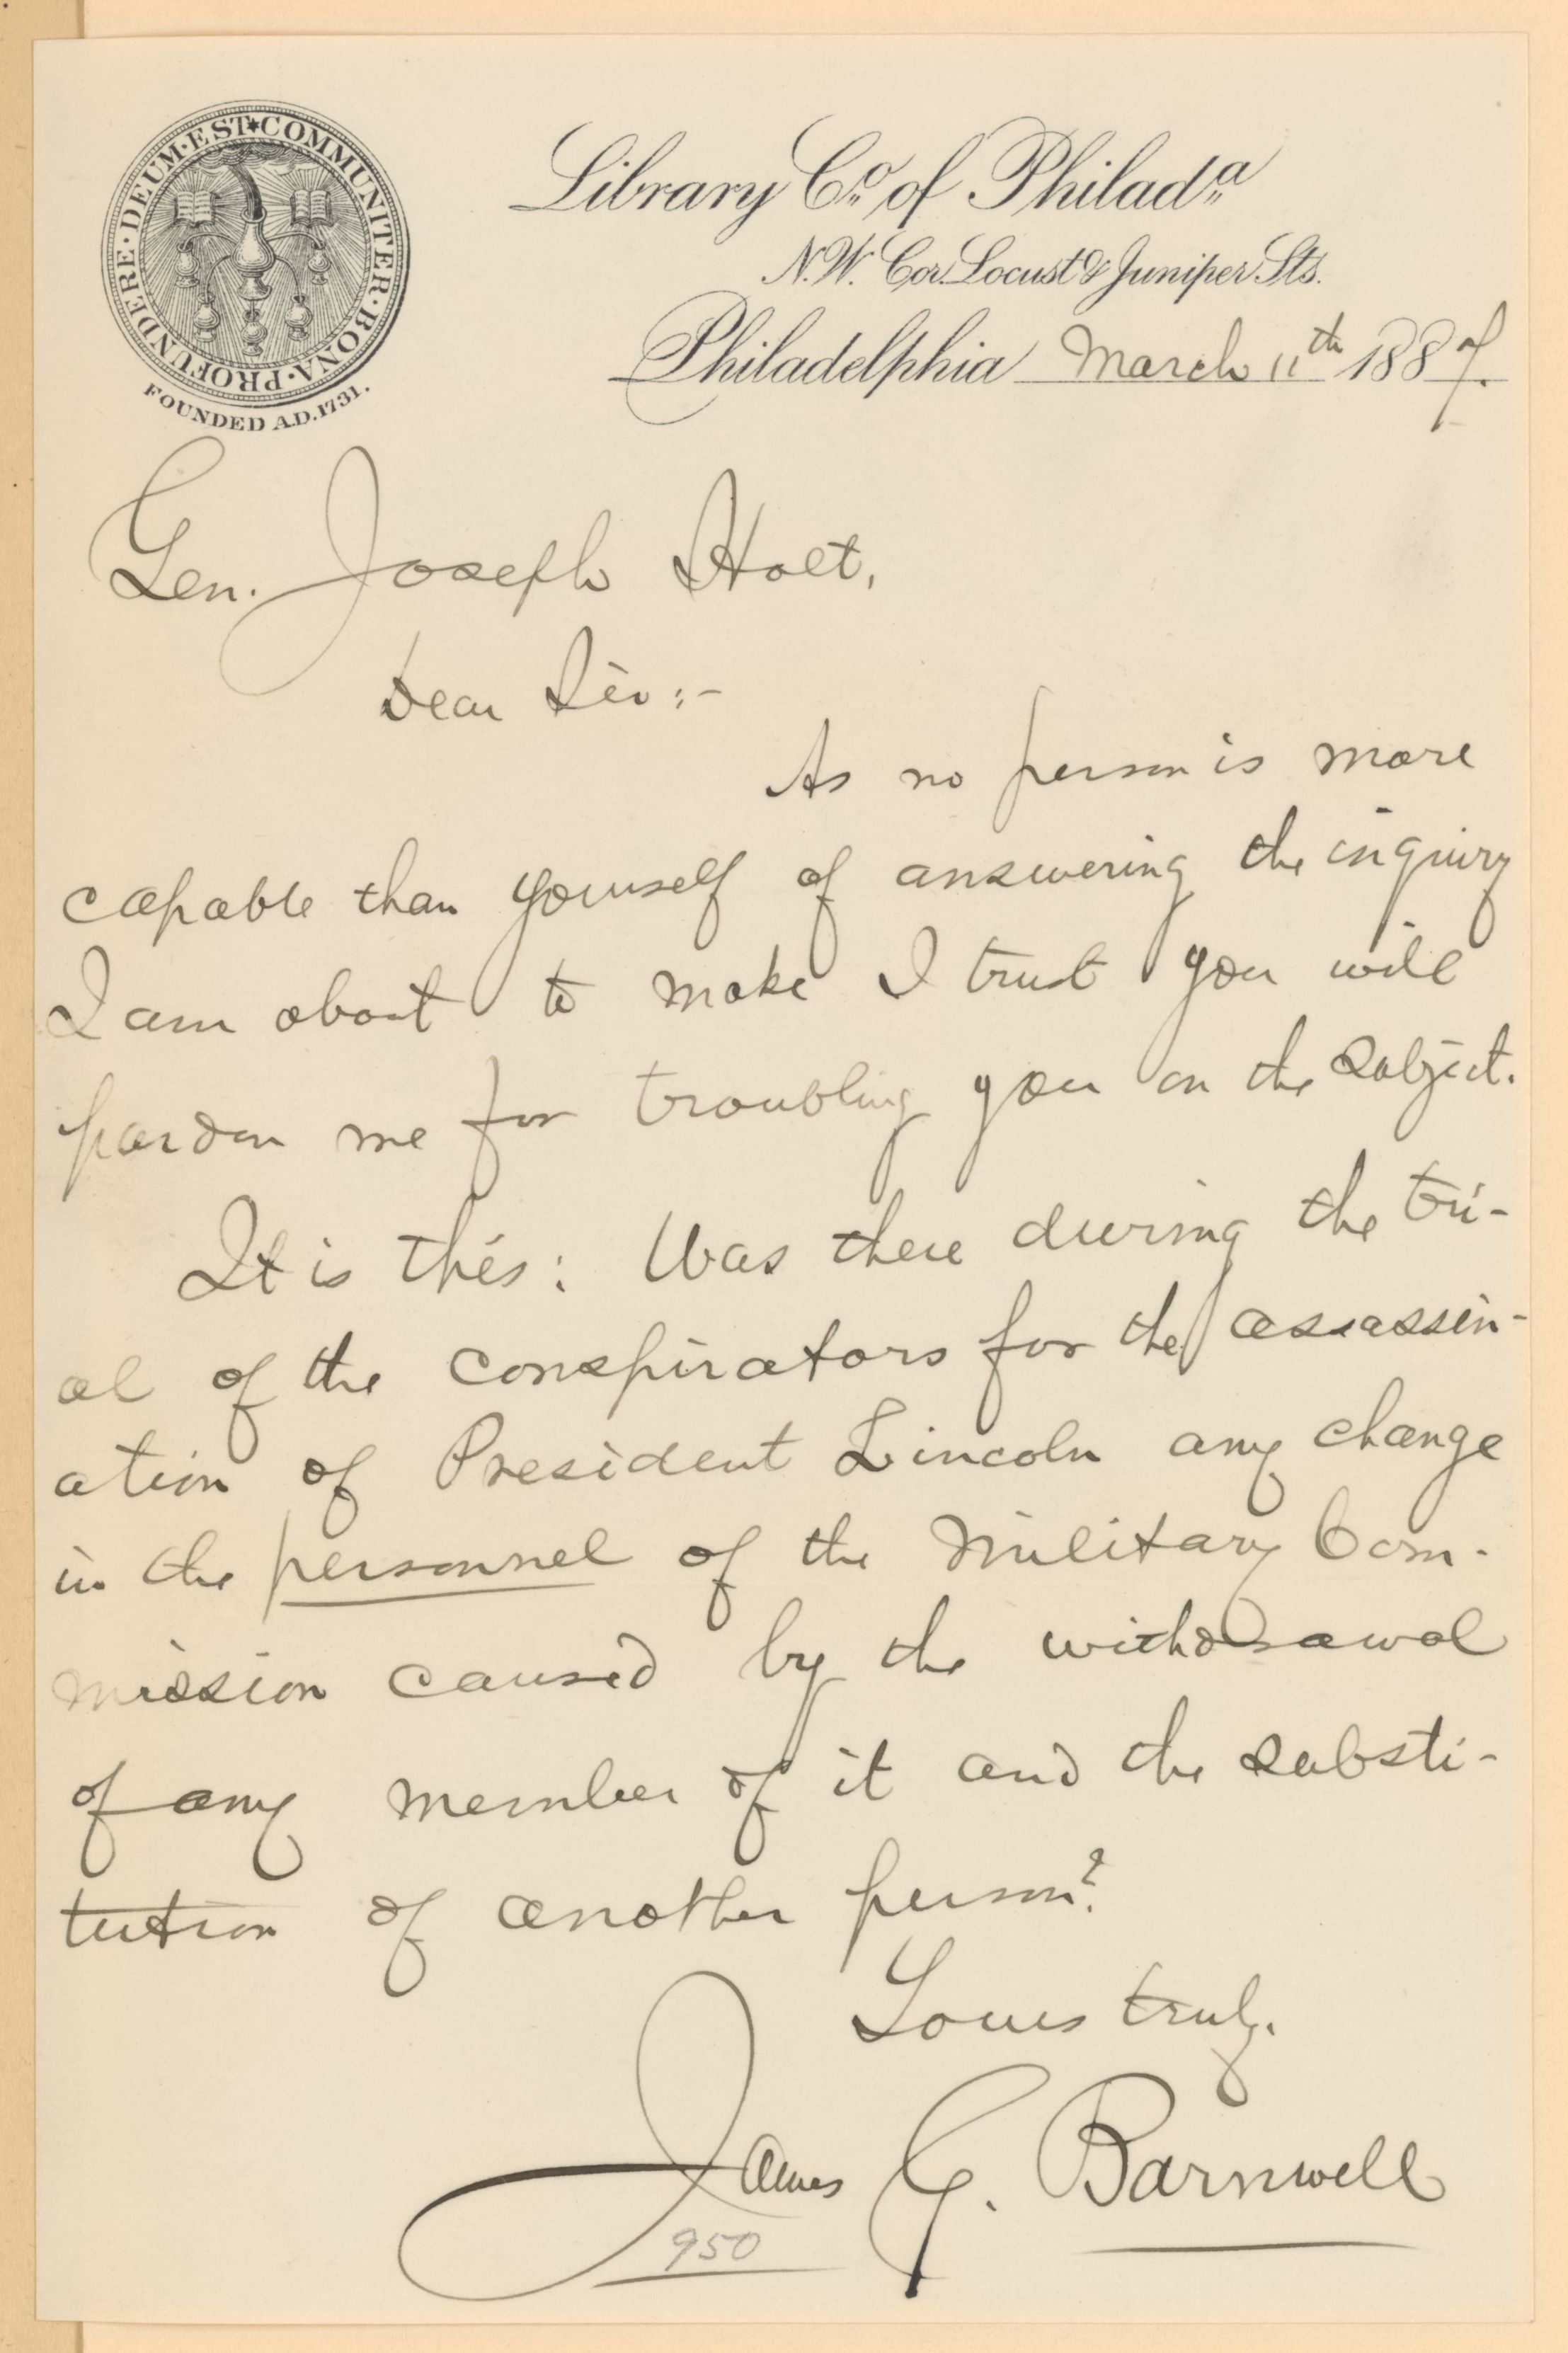 COMMUNITER·BONA·PROFUNDERE·DEUM·EST
FOUNDED A.D. 1731.
Library Co. of Philada
N.W. Cor. Locust & Juniper Sts.
Philadelphia March 11th 1887.
Gen. Joseph Holt,
Dear Sir:-
As no person is more
capable than yourself of answering the inquiry
I am about to make I trust you will
pardon me for troubling you on the subject.
It is this: Was there during the tri-
al of the conspirators for the assassin-
ation of President Lincoln any change
in the personnel of the Military Com-
mission caused by the withdrawal
of any member of it and the substi-
tution of another person?
Yours truly.
James G. Barnwell
950